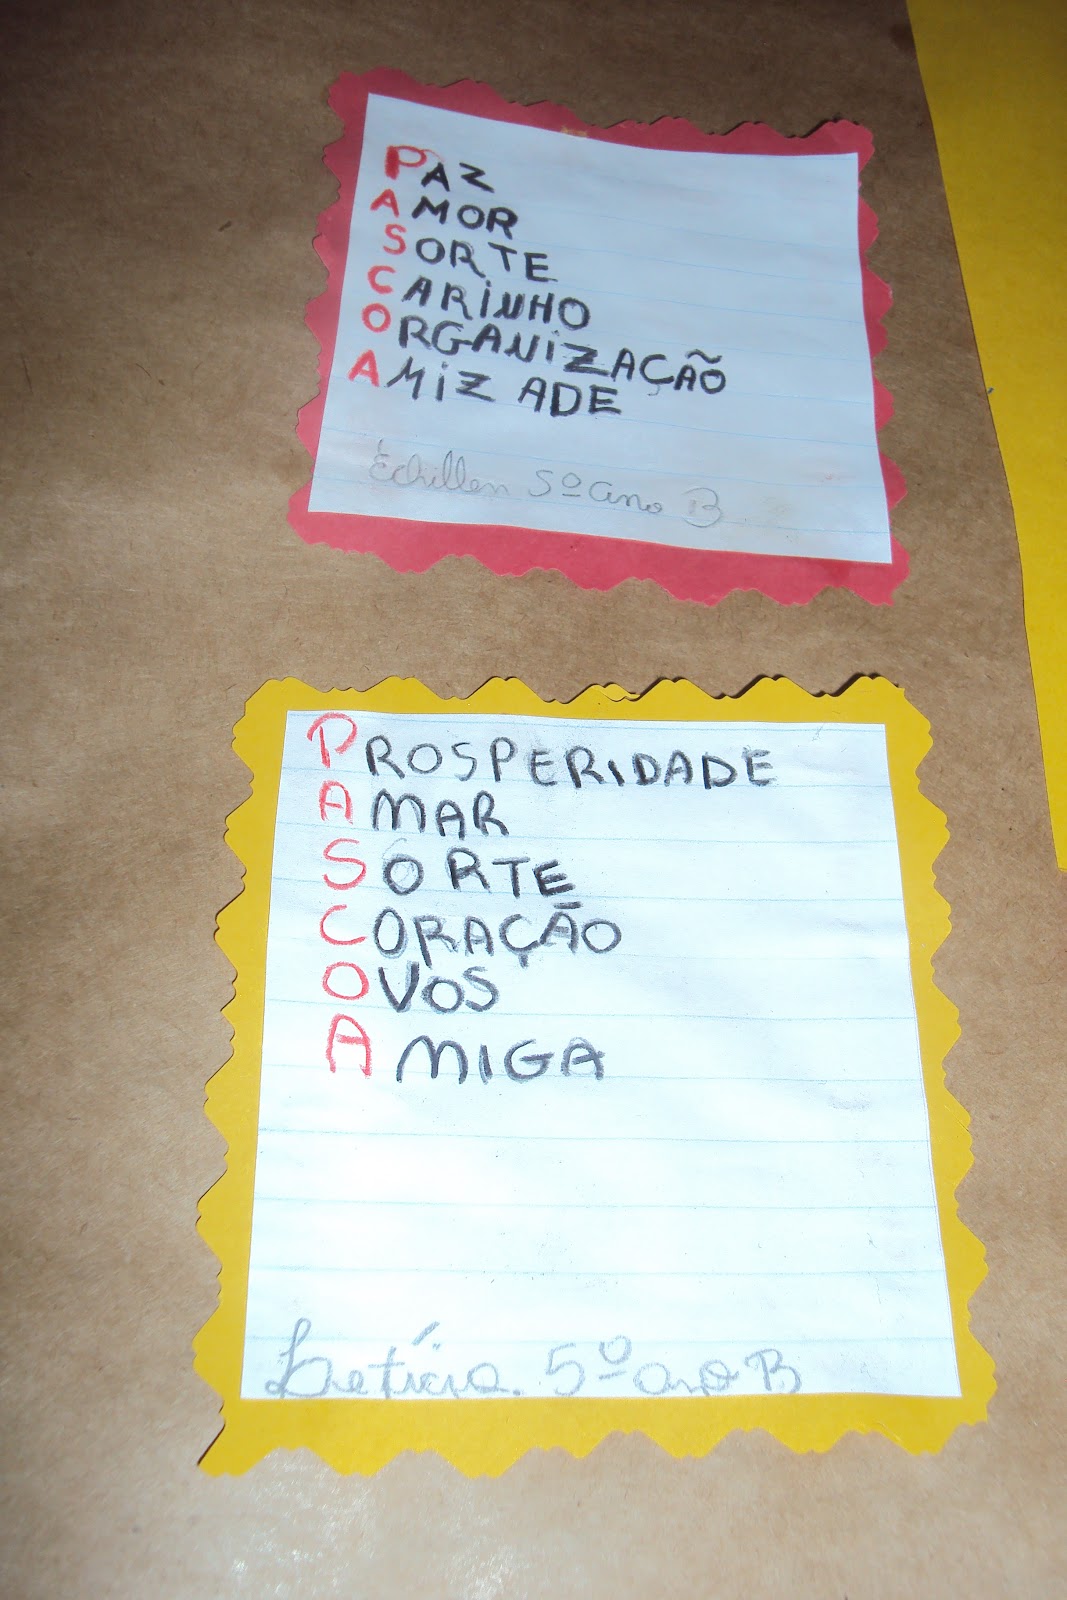 PAZ
AMOR
SORTE
CARINHO
ORGANIZAÇÃO
AMIZADE
Échillen 5º ano B
PROSPERIDADE
AMAR
SORTE
CORAÇÃO
OVOS
AMIGA
Letícia. 5º ano B